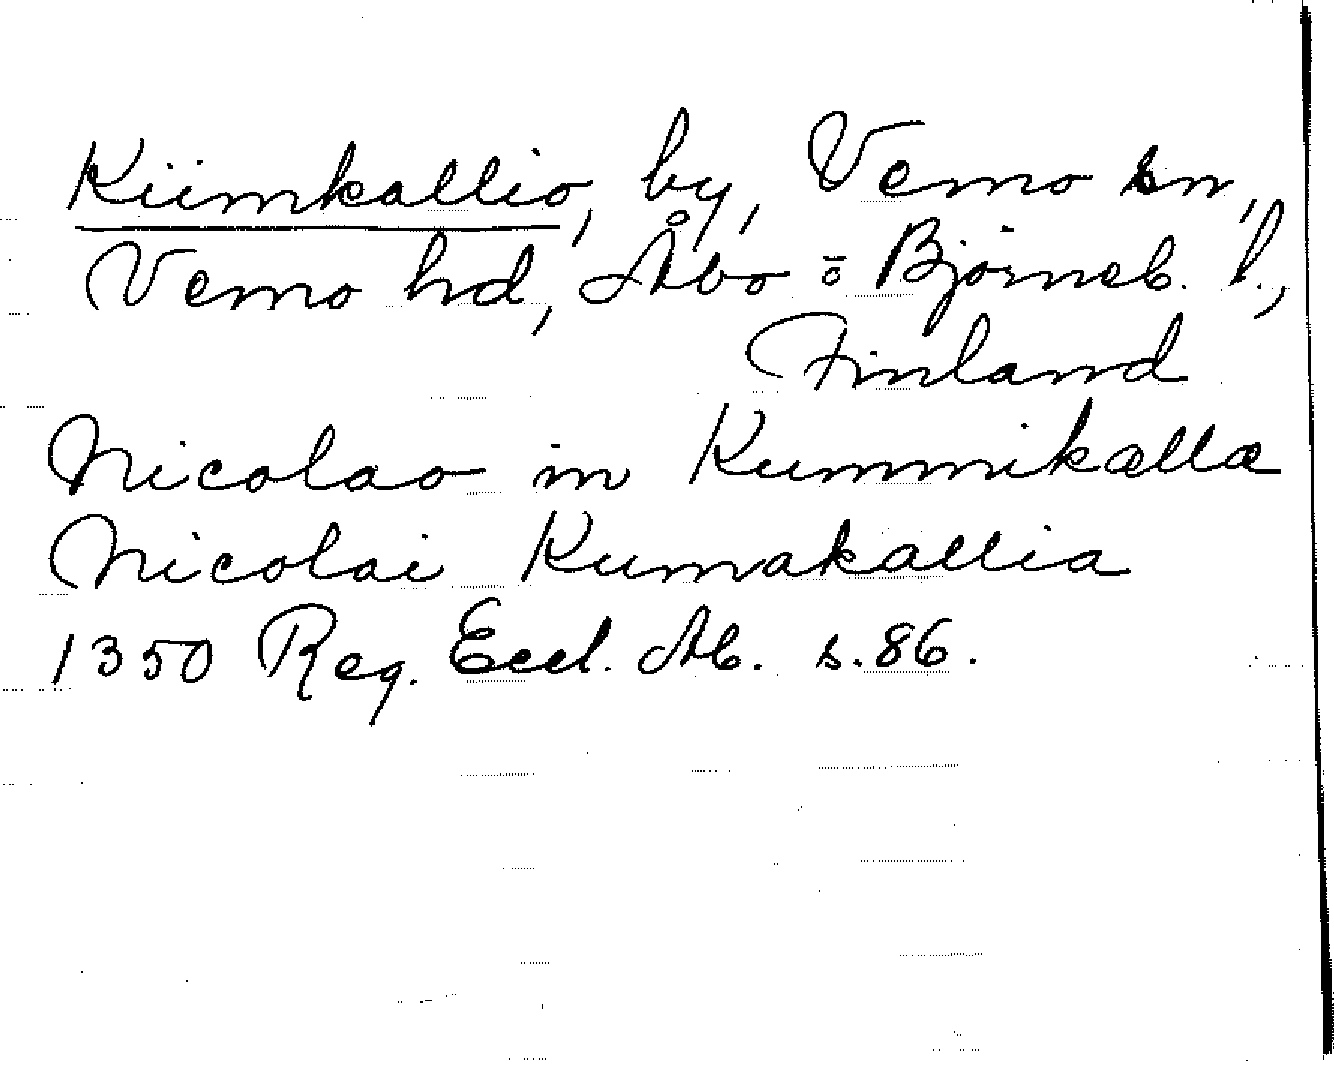 Kiimkallio, by, Vemo sn,
Vemo hd, Åbo o Björneb. l.,
Finland
Nicolao in Kummikælla
Nicolai Kumakallia
1350 Reg. Eccl. Ab. s. 86.